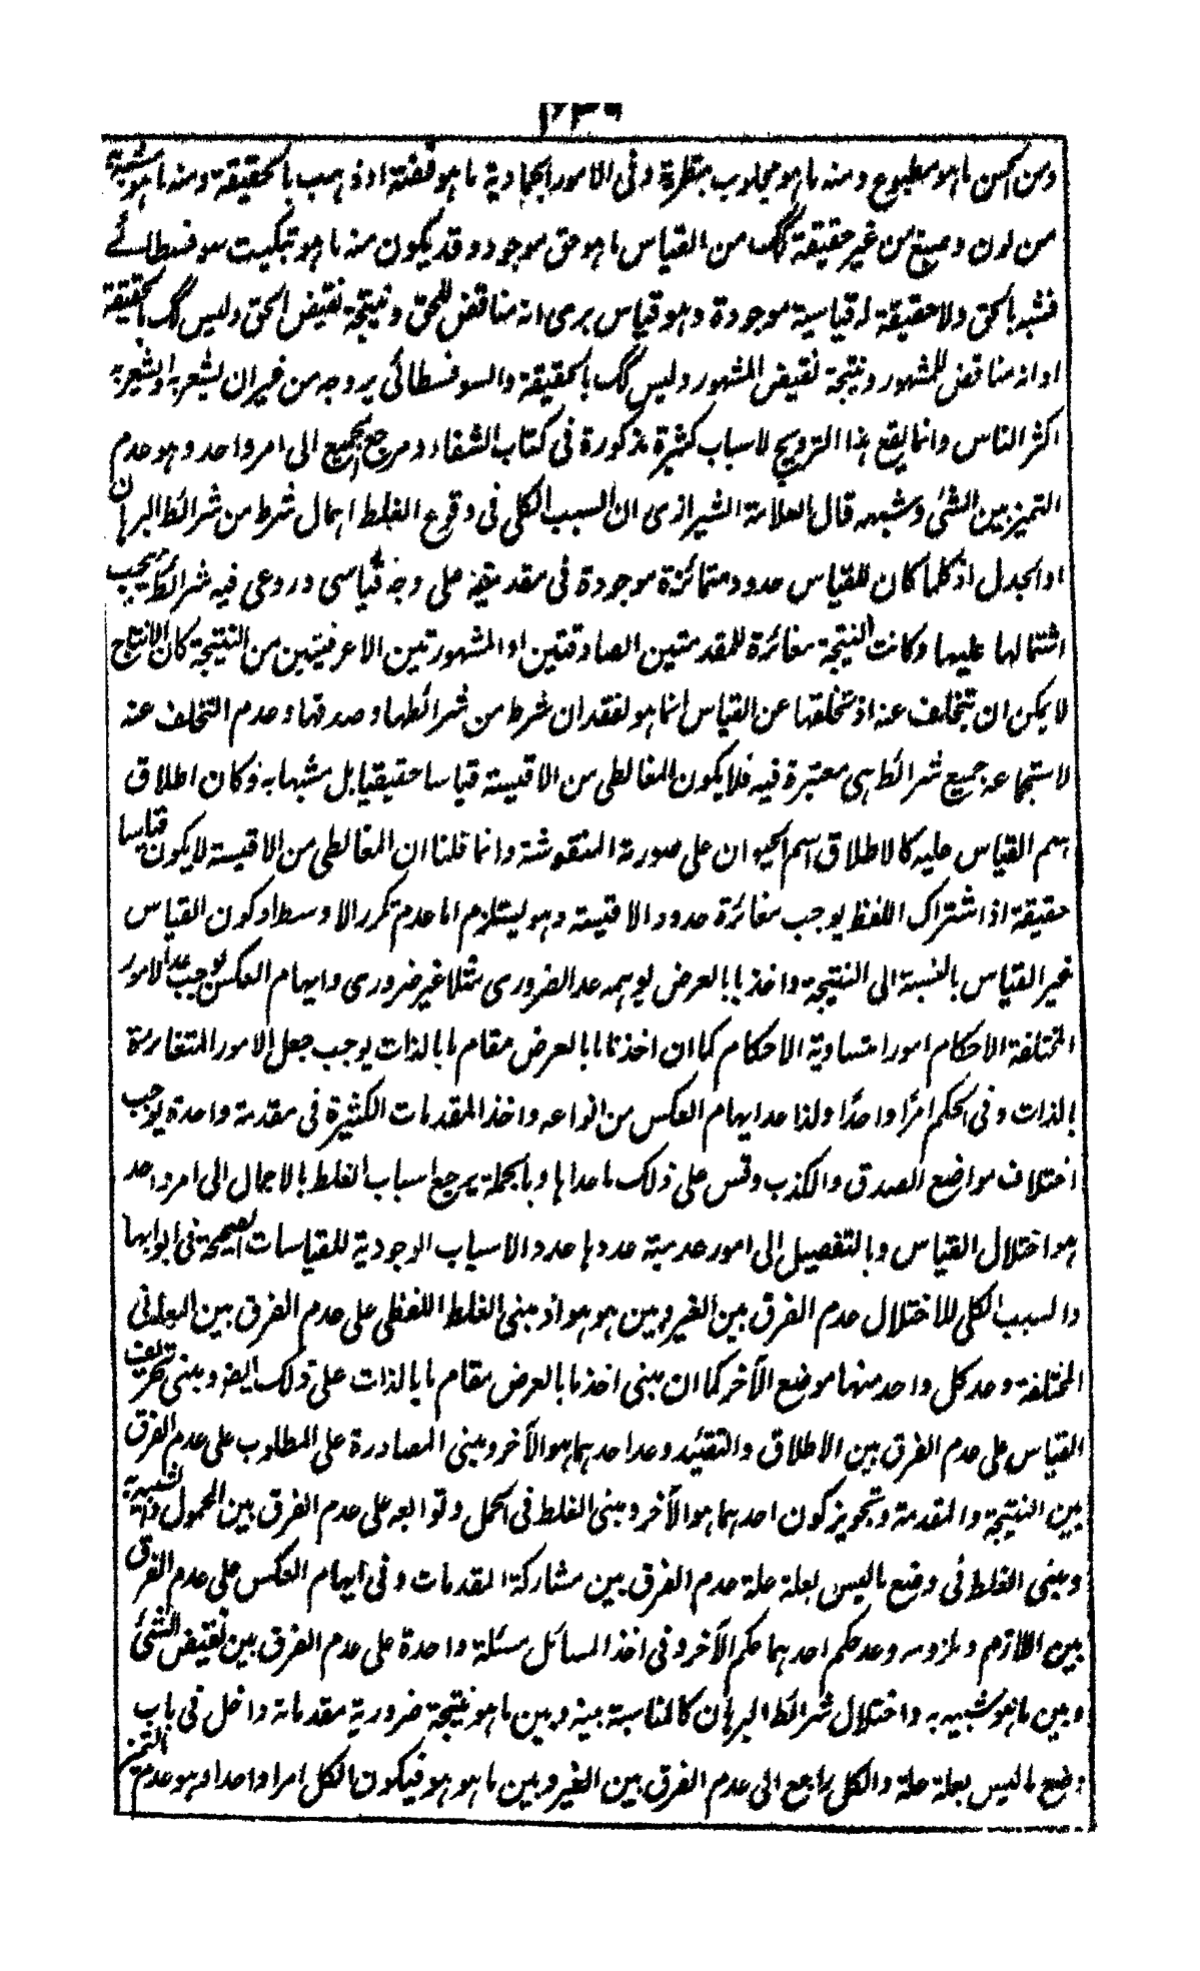 ٢٣٦
ومن الحسن ما هو مطبوع ومنه ما هو مجلوب بتطرية وفى الامور الجمادية ما هو فضة او ذهب بالحقيقة ومنه ما هو مشبه
من لون وصبغ من غير حقيقة كك من القياس ما هو حق موجود وقد يكون منه ما هو تبكيت سوفسطائے
مشبه بالحق ولا حقيقة له قياسية موجودة وهو قياس يرى انه مناقض للحق ونتيجة نقيض الحق وليس كك بالحقيقة
او انه مناقض للمشهور ونتيجة نقيض المشهور وليس كك بالحقيقة والسوفسطائى يروجه من غير ان يشعر به او يشعر به
اكثر الناس وانما يقع هذا الترويج لاسباب كثيرة مذكورة فى كتاب الشفاء ومرجع الجميع الى امر واحد وهو عدم
التميز بين الشئ وشبهه قال العلامة الشيرازى ان السبب الكلى فى وقوع الغلط اهمال شرط من شرائط البرهان
او الجدل اذ كلما كان للقياس حدود متمائزة موجودة فى مقدمتيه على وجه قياسى وروعى فيه شرائط يجب
اشتمالها عليها وكانت النتيجة مغائرة للمقدمتين الصادقتين او المشهورتين الاعرفيتين من النتيجة كان الانتاج
لا يمكن ان يتخلف عنه اذ تخلفها عن القياس انما هو لفقدان شرط من شرائطها وصدقها وعدم التخلف عنه
لاستجماعه جميع شرائط هى معتبرة فيه فلا يكون المغالطى من الاقيسة قياسا حقيقيا بل مشبها به وكان اطلاق
اسم القياس عليه كالاطلاق اسم الحيوان على صورته المنقوشة وانما قلنا ان المغالطى من الاقيسة لا يكون قياسا
حقيقة اذ اشتراك اللفظ يوجب مغائرة حدود الاقيسة وهو يستلزم اما عدم تكرر الاوسط او كون القياس
غير القياس بالنسبة الى النتيجة واخذ ما بالعرض يوهمه عد الضرورى مثلا غير ضرورى وايهام العكس يوجب عد الامور
المختلفة الاحكام امورا متساوية الاحكام كما ان اخذنا ما بالعرض مقام ما بالذات يوجب جعل الامور المتغائرة
بالذات وفى الحكم امرًا واحدًا ولذا عد ايهام العكس من انواعه واخذ المقدمات الكثيرة فى مقدمة واحدة يوجب
اختلاف مواضع الصدق والكذب وقس على ذلك ما عداها وبالجملة يرجع اسباب الغلط بالاجمال الى امر واحد
هو اختلال القياس وبالتفصيل الى امور عدمية عددها عدد الاسباب الوجودية للقياسات الصحيحة فى ابوابها
والسبب الكلى للاختلال عدم الفرق بين الغير وبين هو هو اذ مبنى الغلط اللفظى على عدم الفرق بين المعانى
المختلفة وعد كل واحد منهما موضع الآخر كما ان مبنى اخذ ما بالعرض مقام ما بالذات على ذلك ايضا ومبنى تحريف
القياس على عدم الفرق بين الاطلاق والتقئيد وعد احدهما هو الآخر ومبنى المصادرة على المطلوب على عدم الفرق
بين النتيجة والمقدمة وتجويز كون احدهما هو الآخر ومبنى الغلط فى الحمل وتوابعه على عدم الفرق بين المحمول والشبيه به
ومبنى الغلط فى وضع ما ليس بعلة علة عدم الفرق بين مشاركة المقدمات وفى ايهام العكس على عدم الفرق
بين اللازم وملزومه وعد حكم احدهما حكم الآخر وفى اخذ المسائل مسئلة واحدة على عدم الفرق بين نقيض الشئ
وبين ما هو شبيه به واختلال شرائط البرهان كالمناسبة بينه وبين ما هو نتيجة ضرورية مقدماته داخل فى باب
وضع ما ليس بعلة علة والكل راجع الى عدم الفرق بين الغير وبين ما هو هو فيكون الكل امرا واحدا وهو عدم التميز